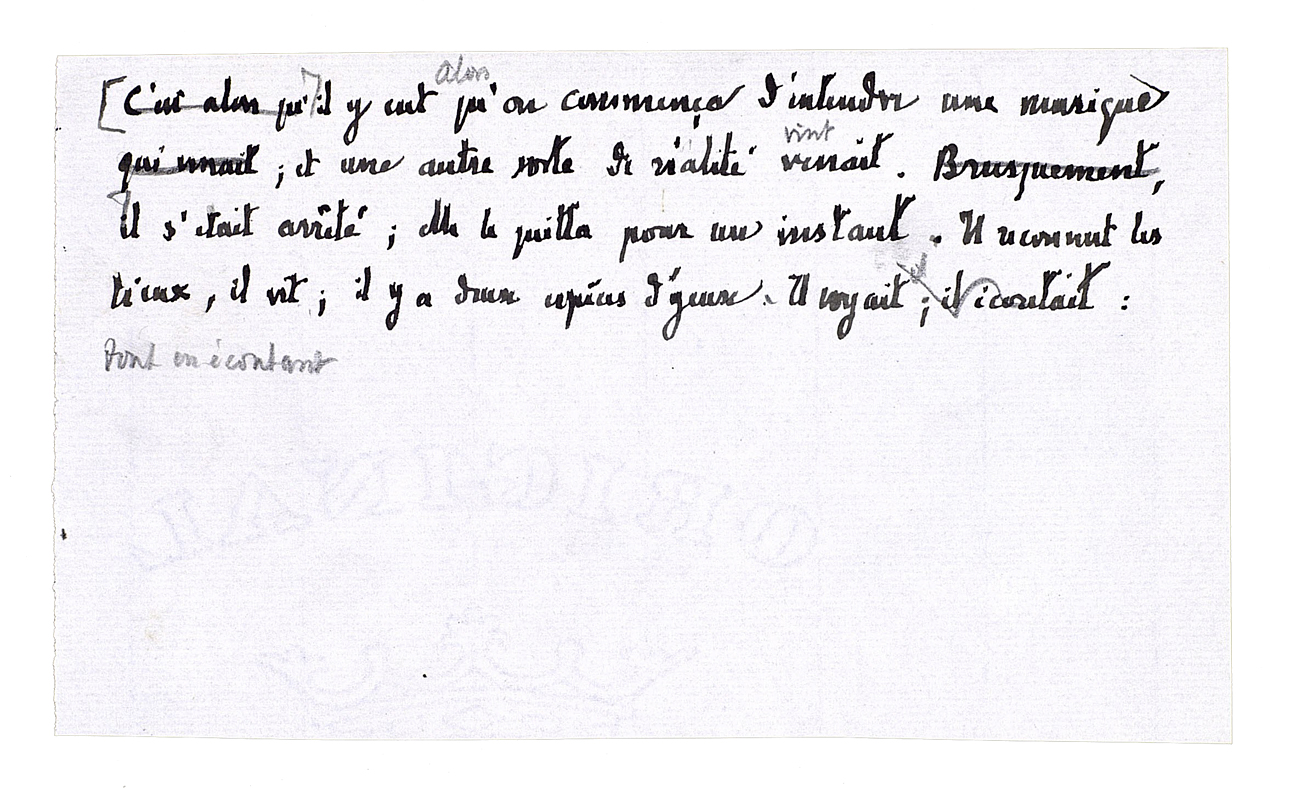 alors
[C'est alors qu'il y eut qu'on commença d'entendre une musique
vint
qui venait ; et une autre sorte de réalité venait. Brusquement,
il s'était arrêté ; elle le quitta pour un instant. Il reconnut les
lieux, il vit ; il y a deux espèces d'yeux. Il voyait ; il écoutait :
tout en écoutant
ORIGINAL